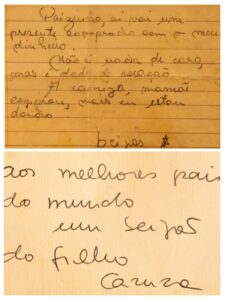 Paizinho, aí vai um
presente comprado com o meu
dinheiro.
Não é nada de caro,
mas é dado de coração.
A camiza, mamãe
comprou, mais eu estou
dando.
beijos
aos melhores pais
do mundo
um beijos
do filho
Cazuza